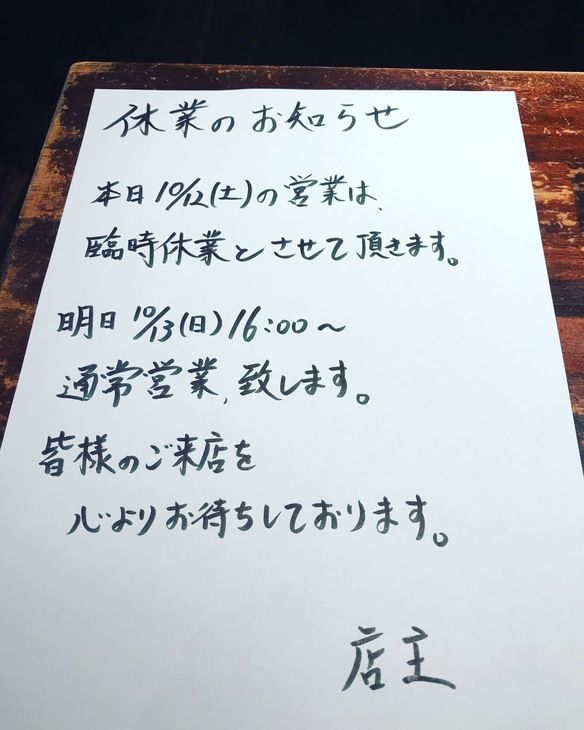 休業のお知らせ
本日10/12(土)の営業は、
臨時休業とさせて頂きます。
明日10/13(日)16:00〜
通常営業、致します。
皆様のご来店を
心よりお待ちしております。
店主